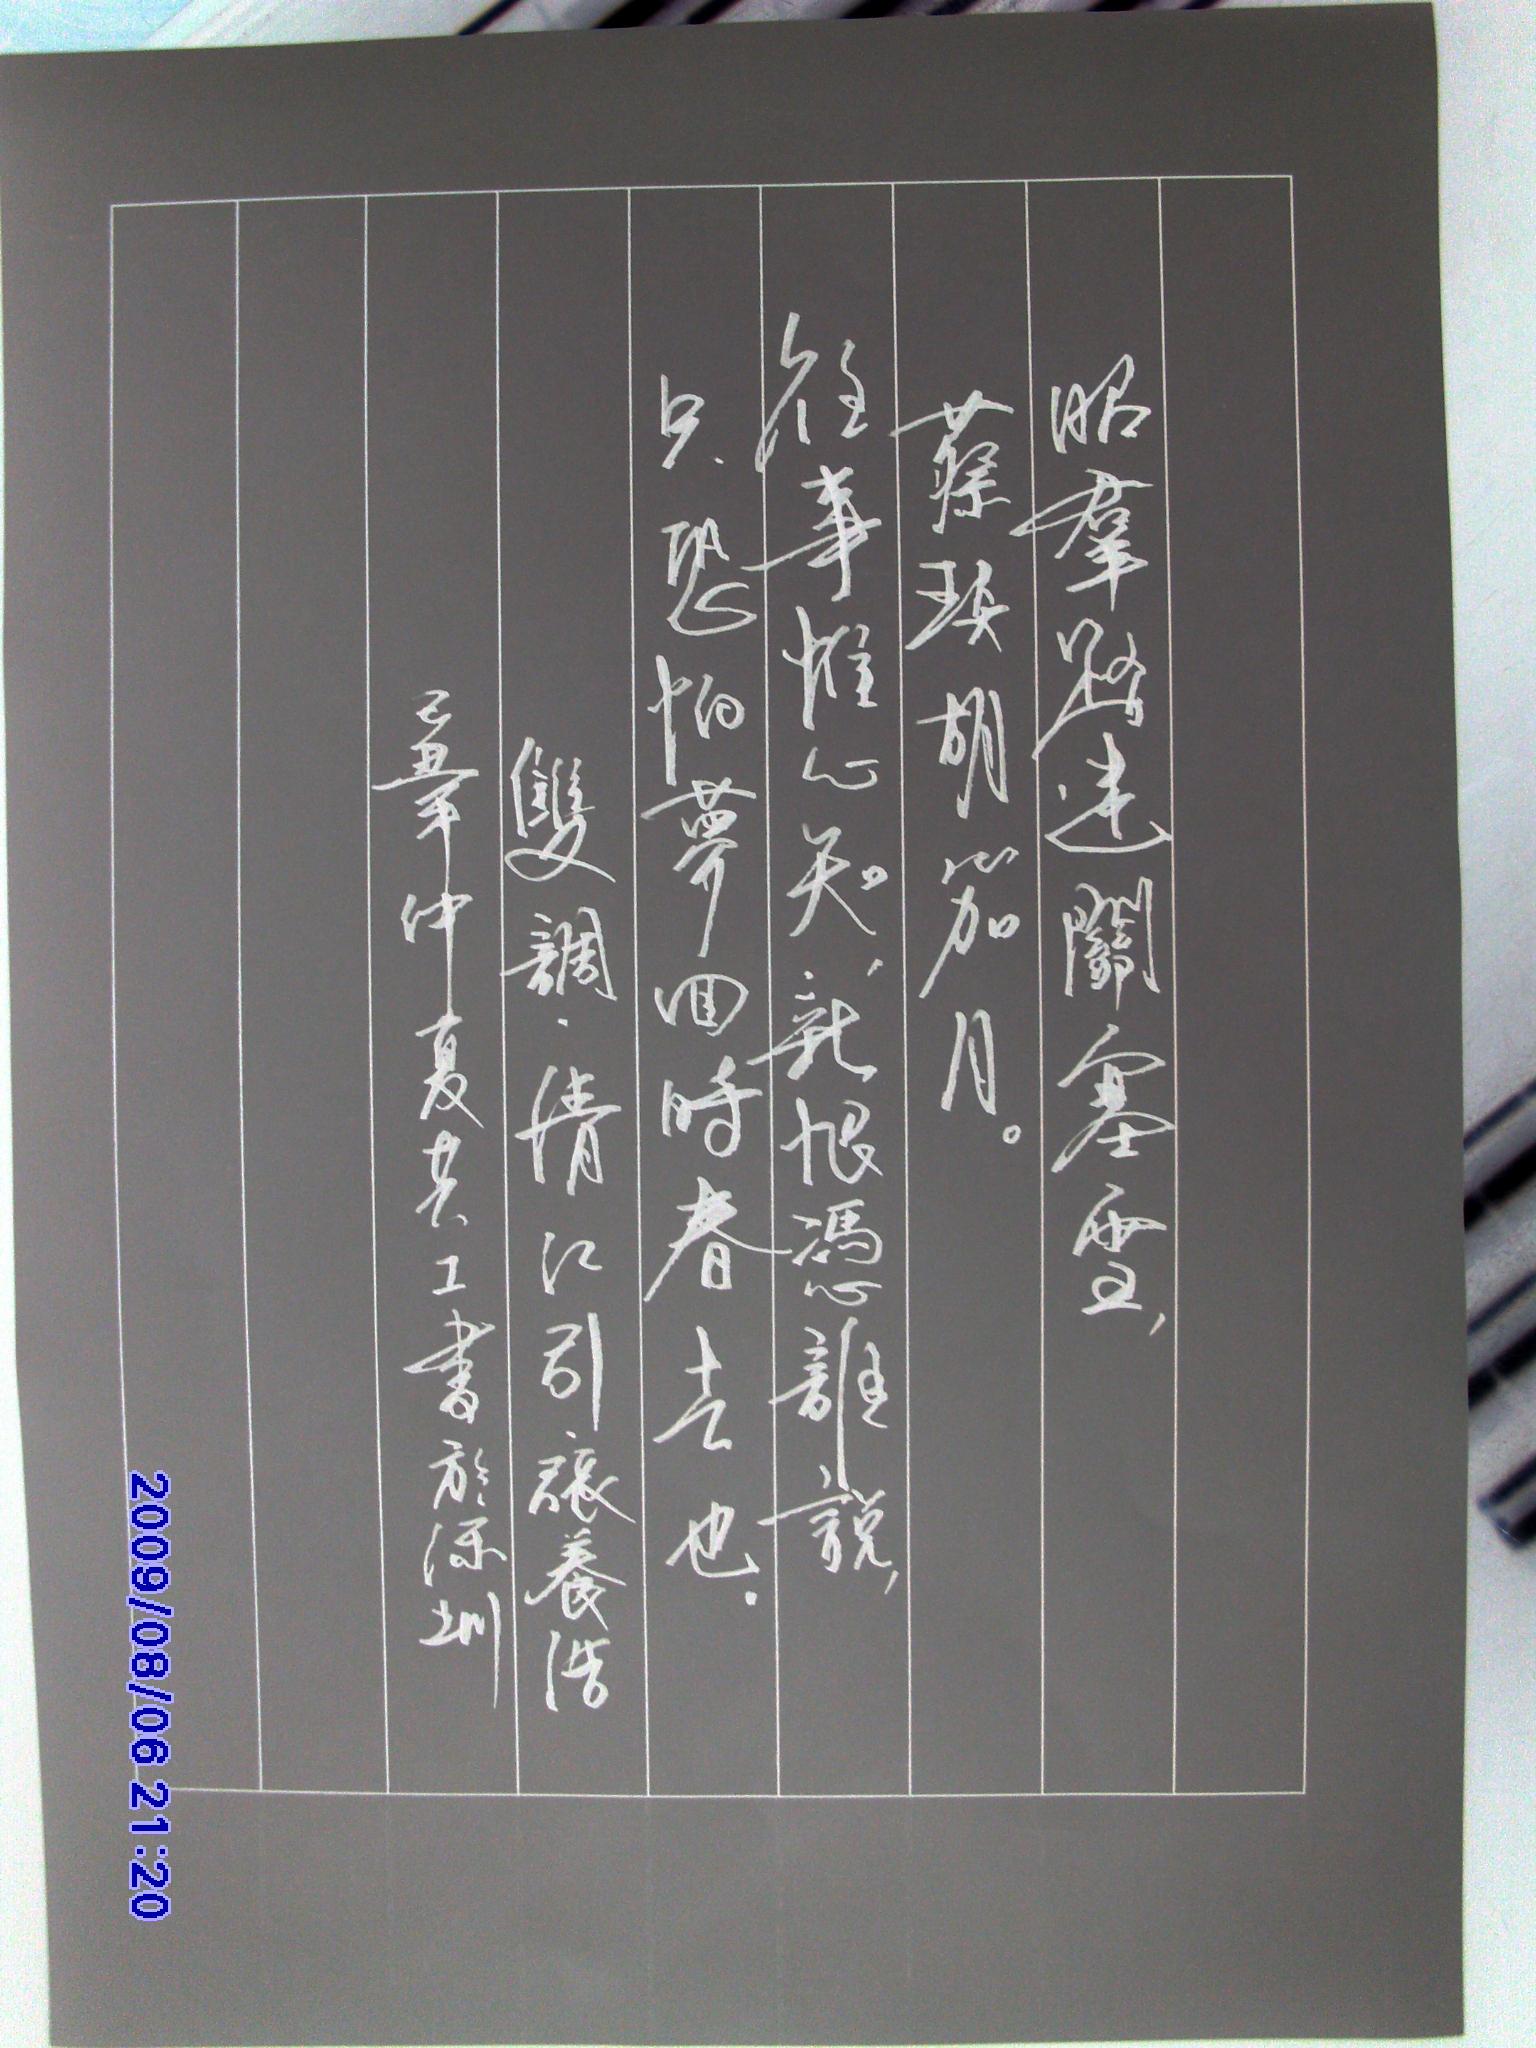 昭羣路迷關塞雪，
蔡琰胡笳月。
往事惟心知，新恨憑誰說，
只恐怕夢回時春去也。
雙調·清江引 張養浩
己丑年仲夏其工書於深圳
2009/08/06 21:20